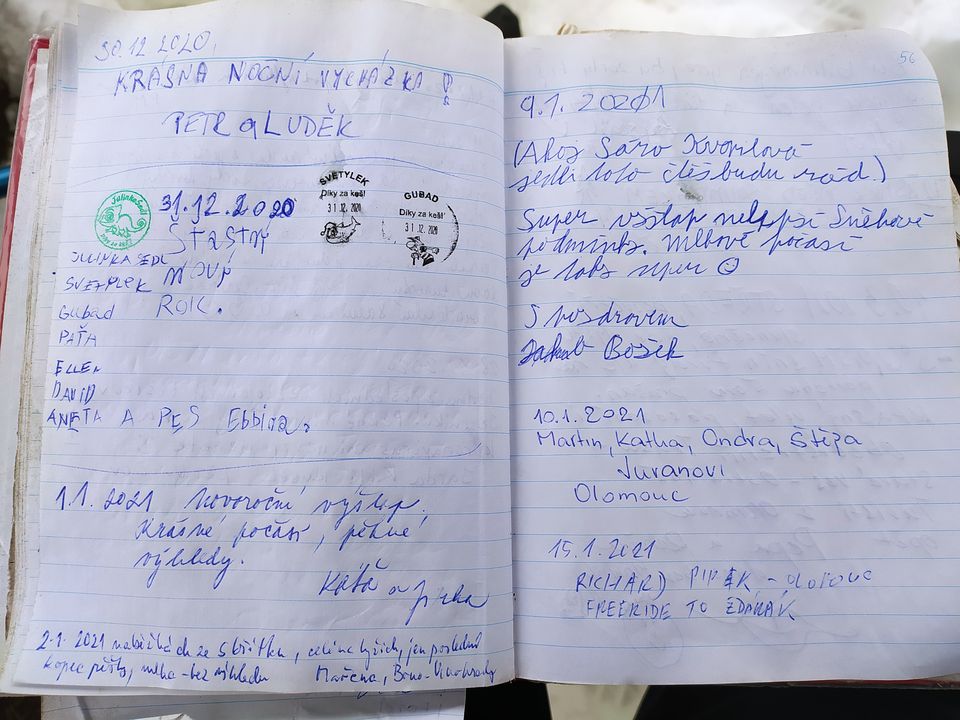 30.12.2020,
KRÁSNÁ NOČNÍ VYCHÁZKA!
PETR a LUDĚK
31.12.2020
ŠŤASTNÝ
NOVÝ
ROK.
SVETYLEK
Díky za keš!
31.12.2020
GUBAD
Díky za keš!
31.12.2020
JULINKA SEDL
SVETYLEK
Gubad
PAŤA
ELLEN
DAVID
ANETA A PES Ebbina.
1.1. 2021 Novoroční výšlap.
Krásné počasí, pěkné
výhledy.
Káťa a Jirka
2.1. 2021 na běžkách ze Skřítku, celé na lyžích, jen poslední
kopec pěšky, mlha - bez výhledu Mařena, Brno-Vinohrady
56
9.1. 2021
(Ahoj Sáro Kvorilová
jestli toto čteš budu rád.)
Super výšlap nelepší Sněhové
podmínky. Mlhové počasí
je taky super
S pozdravem
Jakub Bošek
10.1.2021
Martin, Katka, Ondra, Štěpa
Juranovi
Olomouc
15.1.2021
RICHARD - OLOMOUC
FREERIDE TO ŽĎÁRÁK